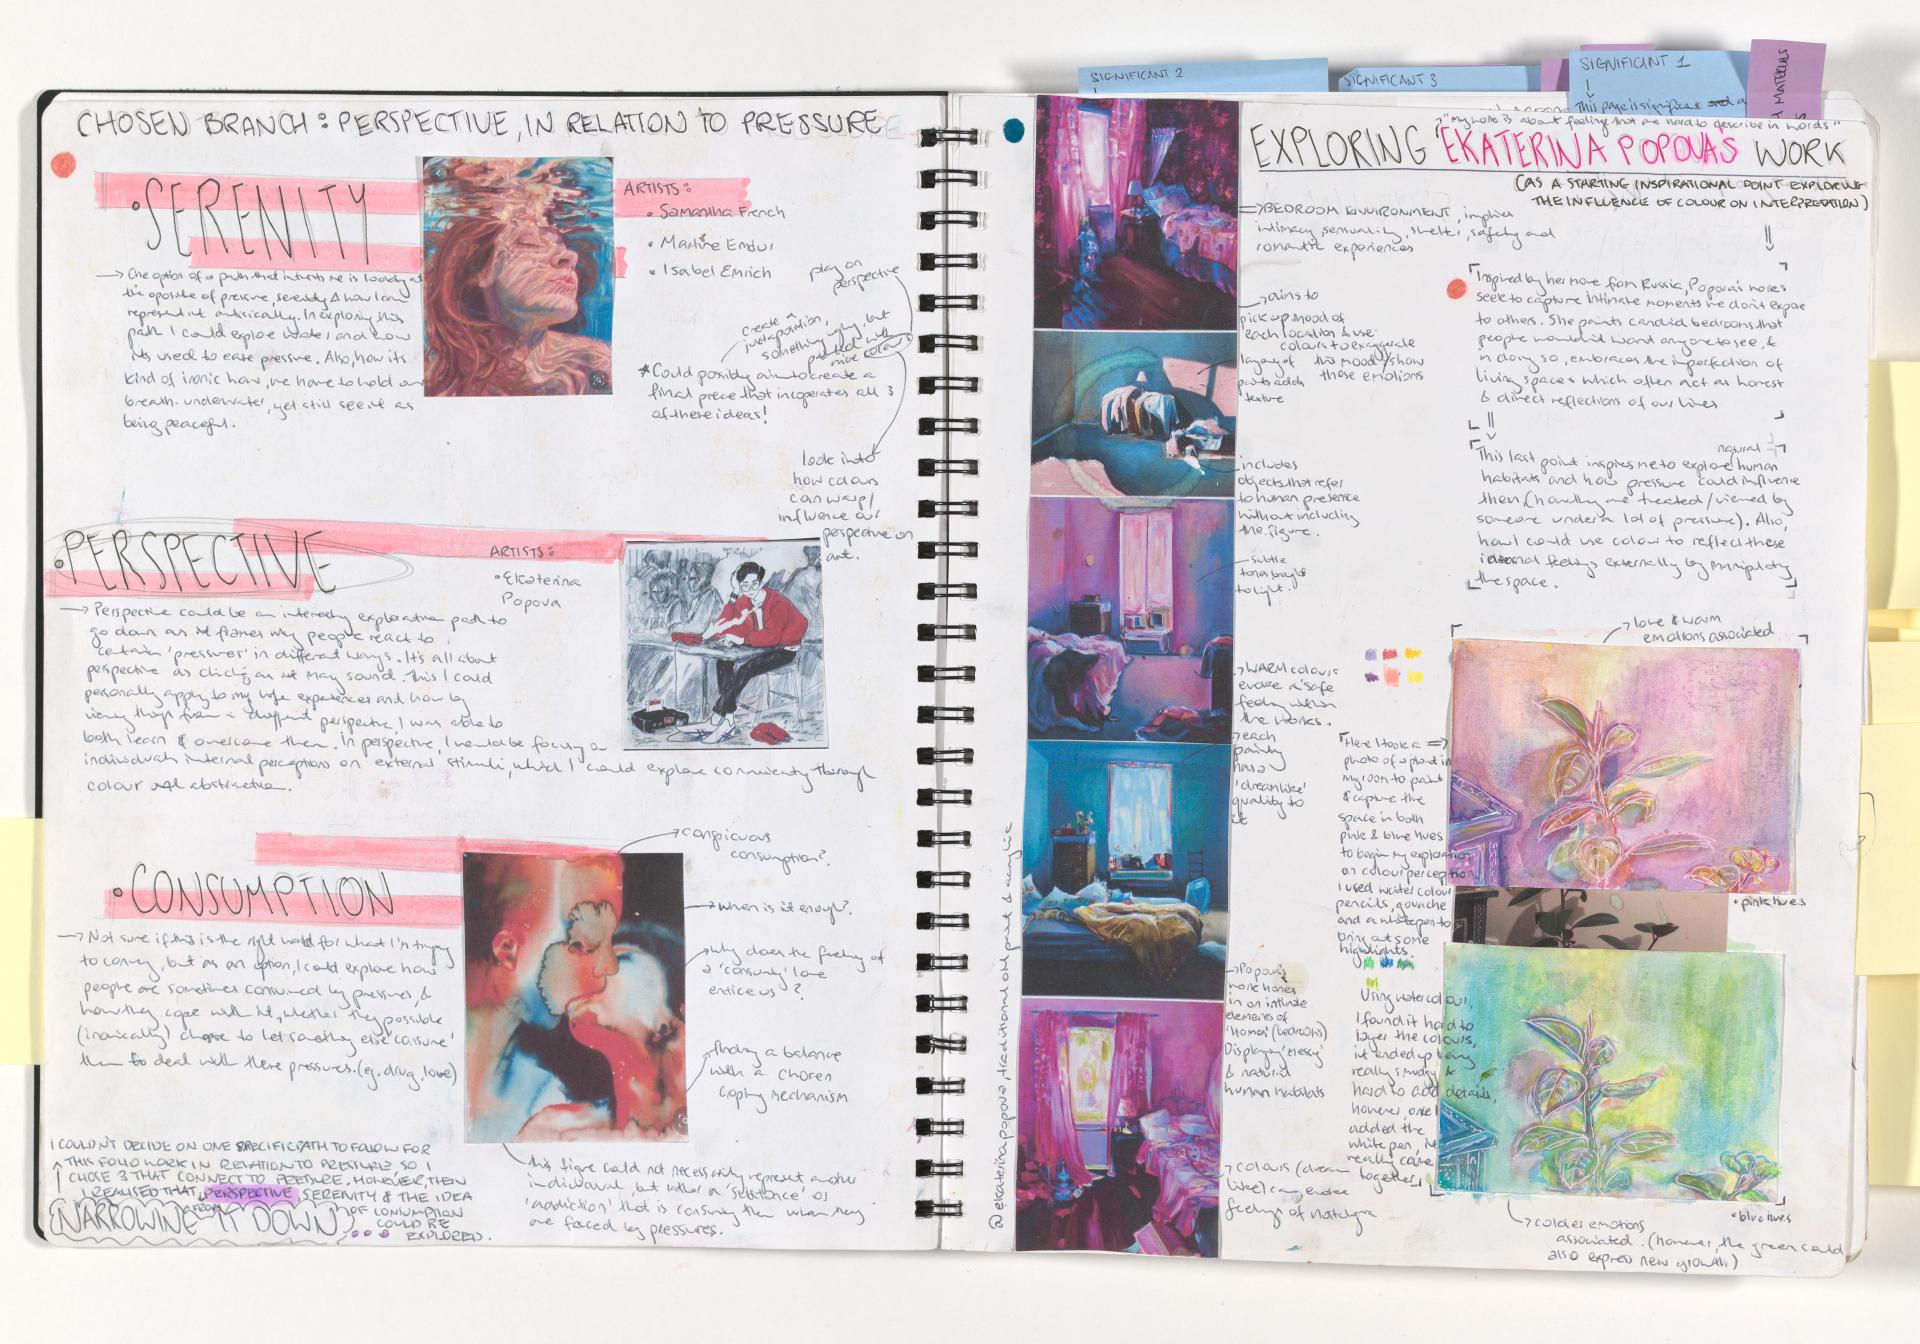 SIGNIFICANT 2
SIGNIFICANT 3
SIGNIFICANT 1
This page is significant and a
MATERIALS
CHOSEN BRANCH: PERSPECTIVE, IN RELATION TO PRESSURE
• SERENITY
→ One option of a path that interests me is looking at
the opposite of pressure, serenity & how I can
represent it artistically. In exploring this
path I could explore water, and how
its used to ease pressure. Also, how its
kind of ironic how, we have to hold our
breath underwater, yet still see it as
being peaceful.
ARTISTS:
• Samantha French
• Martine Emdur
• Isabel Emrich
play on
perspective
create a
juxtaposition,
something ugly, but
painted with
nice colours
* Could possibly aim to create a
final piece that incoperates all 3
of these ideas!
look into
how colours
can warp/
influence our
perspective on
art.
• PERSPECTIVE
ARTISTS:
• Ekaterina
Popova
→ Perspective could be an interesting explorative path to
go down as it frames my people react to
certain 'pressures' in different ways. It's all about
perspective as cliché as it may sound. This I could
personally apply to my life experiences and how by
viewing things from a different perspective, I was able to
both learn & overcome them. In perspective, I would be focusing on
individuals internal perceptions on external stimuli, which I could explore conveniently through
colour and abstraction.
• CONSUMPTION
→ Not sure if this is the right word for what I'm trying
to convey, but as an option, I could explore how
people are sometimes consumed by pressures, &
how they cope with it, whether they possible
(ironically) choose to let something else 'consume'
them to deal with these pressures. (eg. drug, love)
→ conspicuous
consumption?
→ when is it enough?
→ why does the feeling of
a 'consuming' love
entice us?
→ finding a balance
with a chosen
coping mechanism
this figure could not necessarily represent another
individual, but rather a 'substance' or
'addiction' that is consuming them when they
are faced by pressures.
I COULDN'T DECIDE ON ONE SPECIFIC PATH TO FOLLOW FOR
THIS FOLIO WORK IN RELATION TO PRESSURE, SO I
CHOSE 3 THAT CONNECT TO PRESSURE. HOWEVER, THEN
I REALISED THAT, FROM PERSPECTIVE, SERENITY & THE IDEA
OF CONSUMPTION
COULD BE
EXPLORED.
NARROWING IT DOWN
"My work is about feelings that are hard to describe in words"
EXPLORING EKATERINA POPOVA'S WORK
(AS A STARTING INSPIRATIONAL POINT EXPLORING
THE INFLUENCE OF COLOUR ON INTERPRETATION)
⇒ BEDROOM ENVIRONMENT, implies
intimacy, sensuality, shelter, safety and
romantic experiences
→ aims to
pick up mood of
each location & use
colours to exaggerate
this mood/show
those emotions
layering of
paints adds
texture
includes
objects that refer
to human presence
without including
the figure.
subtle
tones bought
to light.
→ WARM colours
evoke a 'safe'
feeling within
the works.
→ each
painting
has a
'dreamlike'
quality to
it
→ Popova's
work hones
in on intimate
elements of
'Homes' (bedrooms)
Displaying 'messy'
& natural
human habitats
→ colours (dream
like) can evoke
feelings of nostalgia
@ekaterinapopova, traditional oil paint & acrylic
Inspired by her move from Russia, Popova's works
seek to capture intimate moments we don't expose
to others. She paints candid bedrooms that
people wouldn't want anyone to see, &
in doing so, embraces the imperfection of
living spaces which often act as honest
& direct reflections of our lives
natural
This last point inspires me to explore human
habitats and how pressure could influence
them (how they are treated/viewed by
someone under a lot of pressure). Also,
how I could use colour to reflect these
internal feelings externally by manipulating
the space.
→ love & warm
emotions associated
Here I took a ⇒
photo of a plant in
my room to paint
& capture the
space in both
pink & blue hues
to begin my exploration
on colour perception
I used water colour
pencils, gouache
and a white pen to
bring out some
highlights.
• pink hues
Using watercolour,
I found it hard to
layer the colours,
it ended up being
really smudgy &
hard to add details,
however, once I
added the
white pen, it
really came
together!
• blue hues
→ colder emotions
associated. (however, the green could
also express new growth)